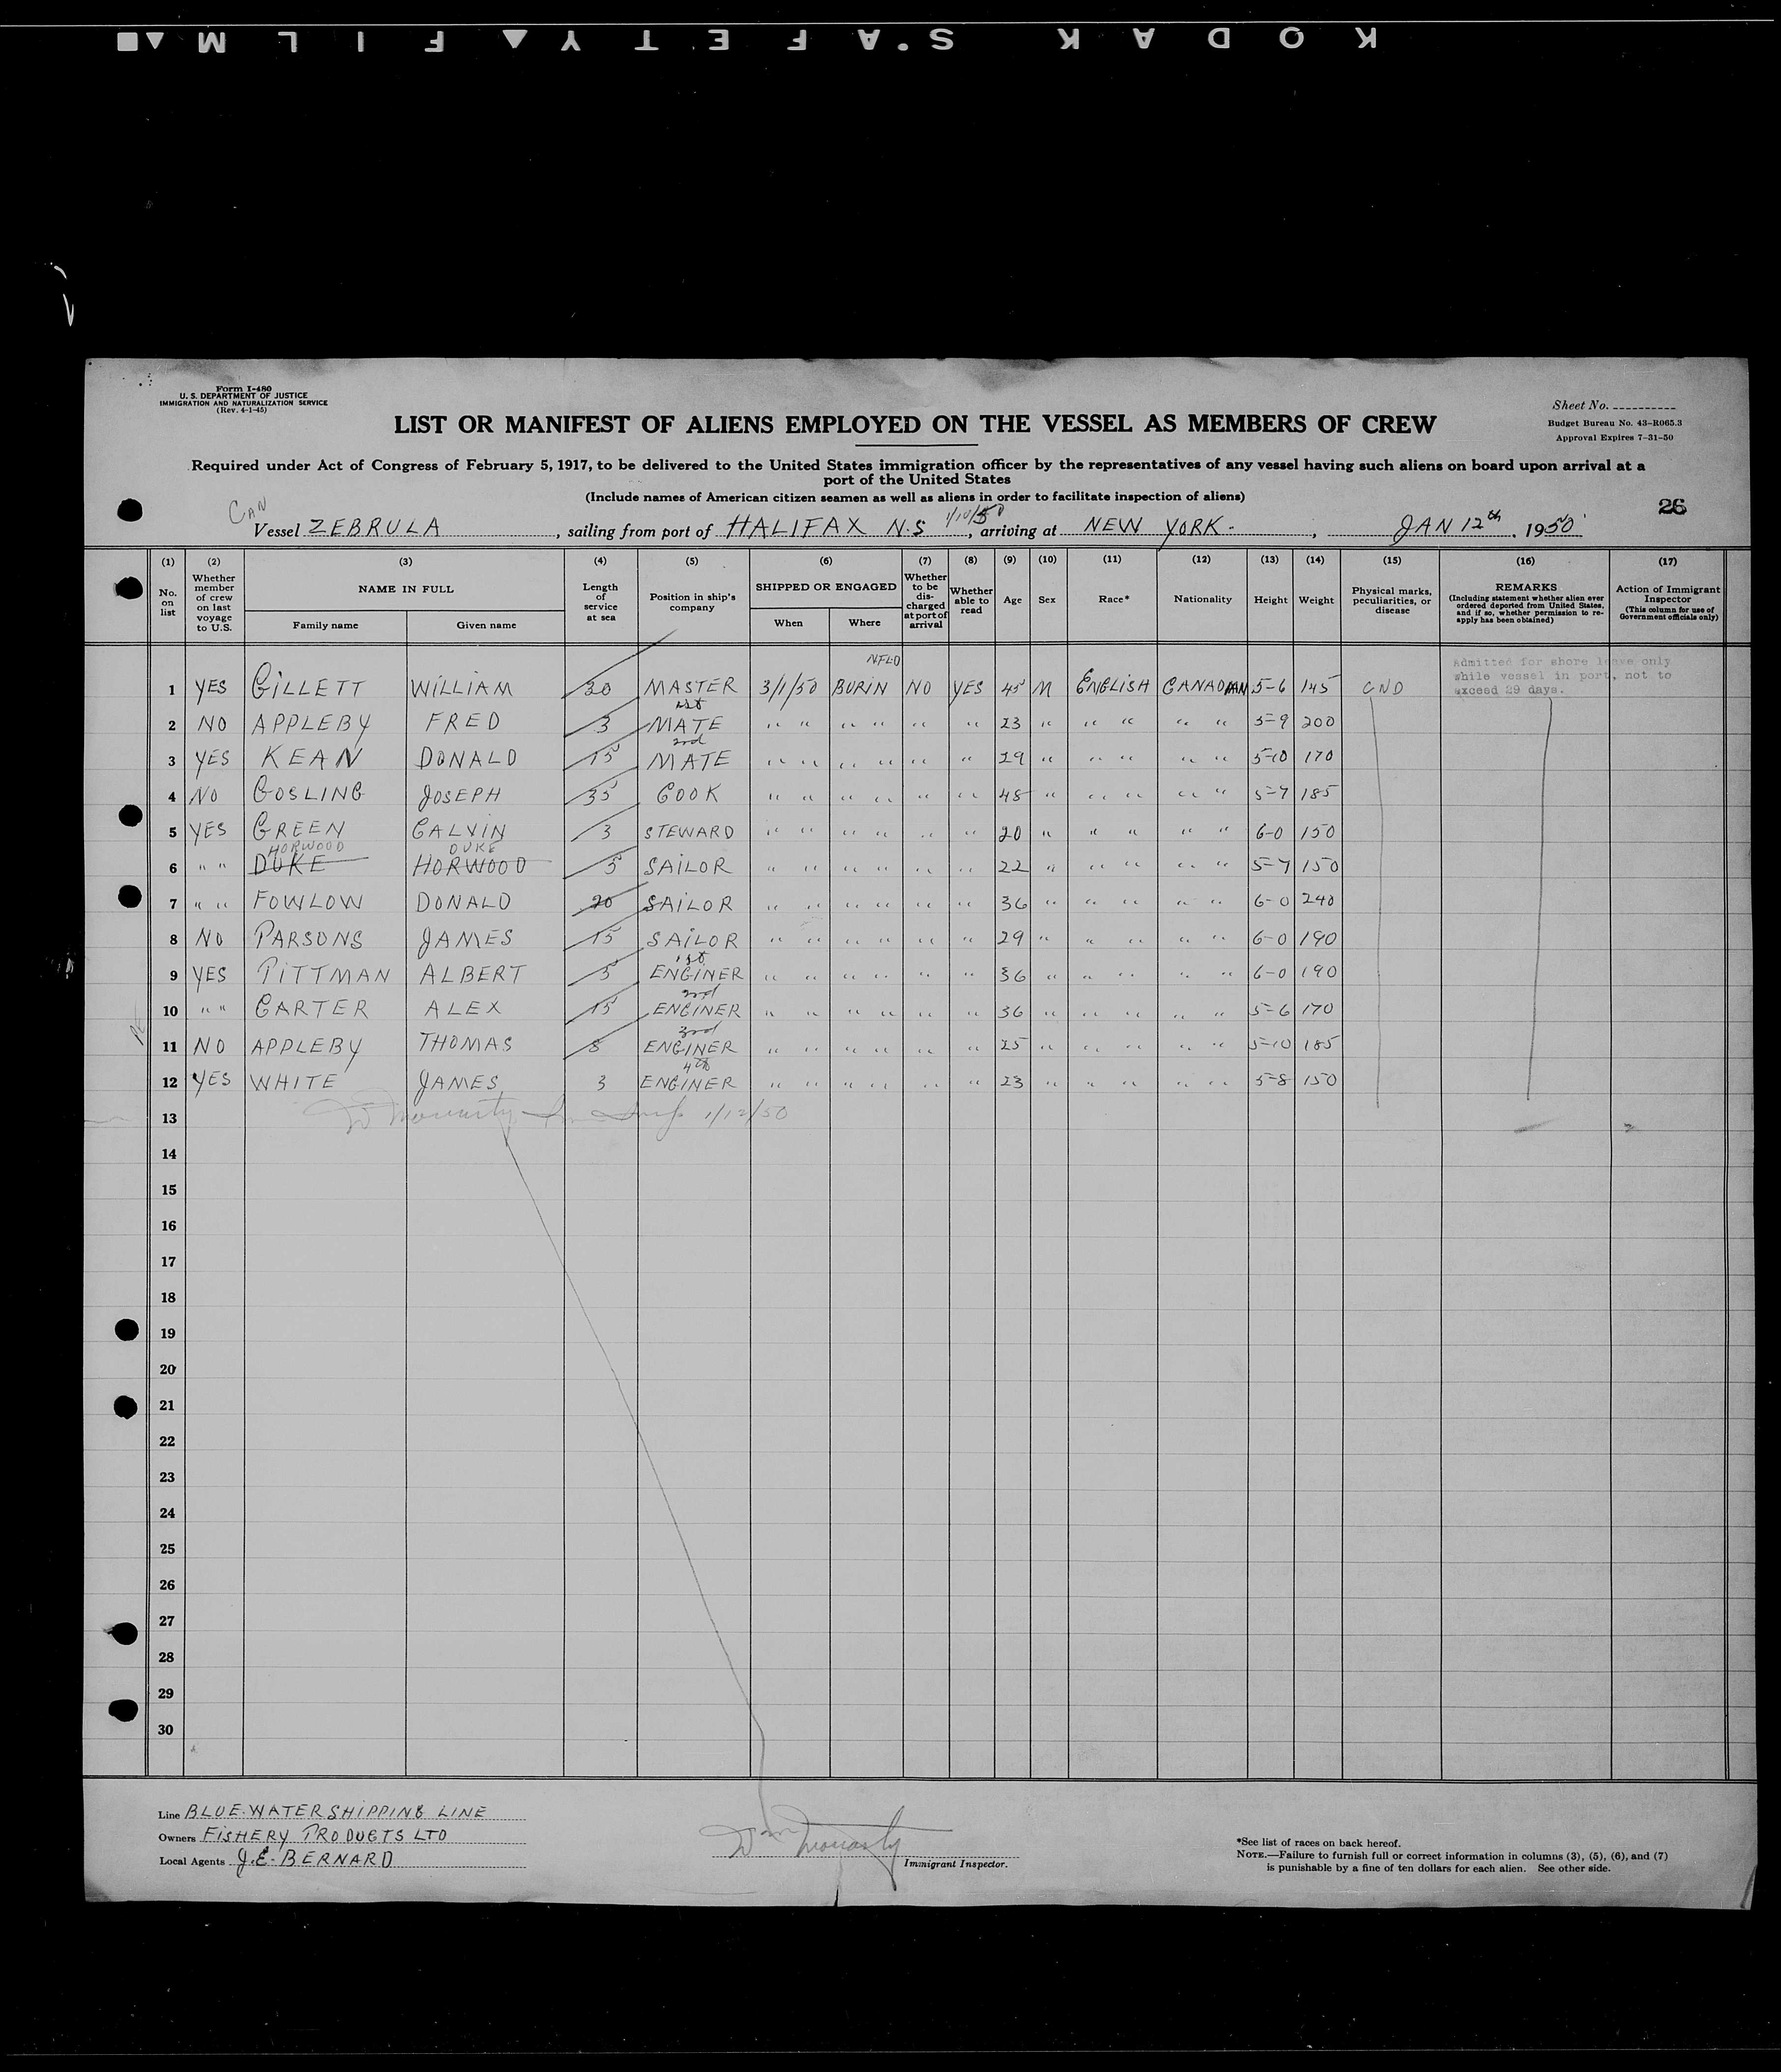 KODAK SAFETY FILM
Form I-480
U. S. DEPARTMENT OF JUSTICE
IMMIGRATION AND NATURALIZATION SERVICE
(Rev. 4-1-45)
Sheet No.
Budget Bureau No. 43-R065.3
Approval Expires 7-31-50
LIST OR MANIFEST OF ALIENS EMPLOYED ON THE VESSEL AS MEMBERS OF CREW
Required under Act of Congress of February 5, 1917, to be delivered to the United States immigration officer by the representatives of any vessel having such aliens on board upon arrival at a
port of the United States
(Include names of American citizen seamen as well as aliens in order to facilitate inspection of aliens)
26
CAN
1/10/50
Vessel ZEBRULA, sailing from port of HALIFAX N.S, arriving at NEW YORK-, JAN 12th, 1950
(1) (2) (3) (4) (5) (6) (7) (8) (9) (10) (11) (12) (13) (14) (15) (16) (17)
No. on list
Whether member of crew on last voyage to U.S.
NAME IN FULL
Family name
Given name
Length of service at sea
Position in ship's company
SHIPPED OR ENGAGED
When
Where
Whether to be discharged at port of arrival
Whether able to read
Age
Sex
Race*
Nationality
Height
Weight
Physical marks, peculiarities, or disease
REMARKS
(Including statement whether alien ever ordered deported from United States, and if so, whether permission to reapply has been obtained)
Action of Immigrant Inspector
(This column for use of Government officials only)
NFLD
Admitted for shore leave only
while vessel in port, not to
exceed 29 days.
1 YES GILLETT WILLIAM 30 MASTER 3/1/50 BURIN NO YES 45 M ENGLISH CANADIAN 5-6 145 CND
2 NO APPLEBY FRED 3 1st MATE " " " " " " 23 " " " " " 5-9 200
3 YES KEAN DONALD 15 2nd MATE " " " " " " 29 " " " " " 5-10 170
4 NO GOSLING JOSEPH 35 COOK " " " " " " 48 " " " " " 5-7 185
5 YES GREEN CALVIN 3 STEWARD " " " " " " 20 " " " " " 6-0 150
HORWOOD DUKE
6 " " DUKE HORWOOD 5 SAILOR " " " " " " 22 " " " " " 5-7 150
7 " " FOWLOW DONALD 20 SAILOR " " " " " " 36 " " " " " 6-0 240
8 NO PARSONS JAMES 15 SAILOR " " " " " " 29 " " " " " 6-0 190
9 YES PITTMAN ALBERT 5 1st ENGINER " " " " " " 36 " " " " " 6-0 190
10 " " CARTER ALEX 15 2nd ENGINER " " " " " " 36 " " " " " 5-6 170
11 NO APPLEBY THOMAS 8 3rd ENGINER " " " " " " 25 " " " " " 5-10 185
12 YES WHITE JAMES 3 4th ENGINER " " " " " " 23 " " " " " 5-8 150
13 W Moriarty Im Insp 1/12/50
14
15
16
17
18
19
20
21
22
23
24
25
26
27
28
29
30
Line BLUE-WATER SHIPPING LINE
Owners FISHERY PRODUCTS LTD
Local Agents J.E. BERNARD
Wm Moriarty
Immigrant Inspector.
*See list of races on back hereof.
NOTE.—Failure to furnish full or correct information in columns (3), (5), (6), and (7)
is punishable by a fine of ten dollars for each alien. See other side.